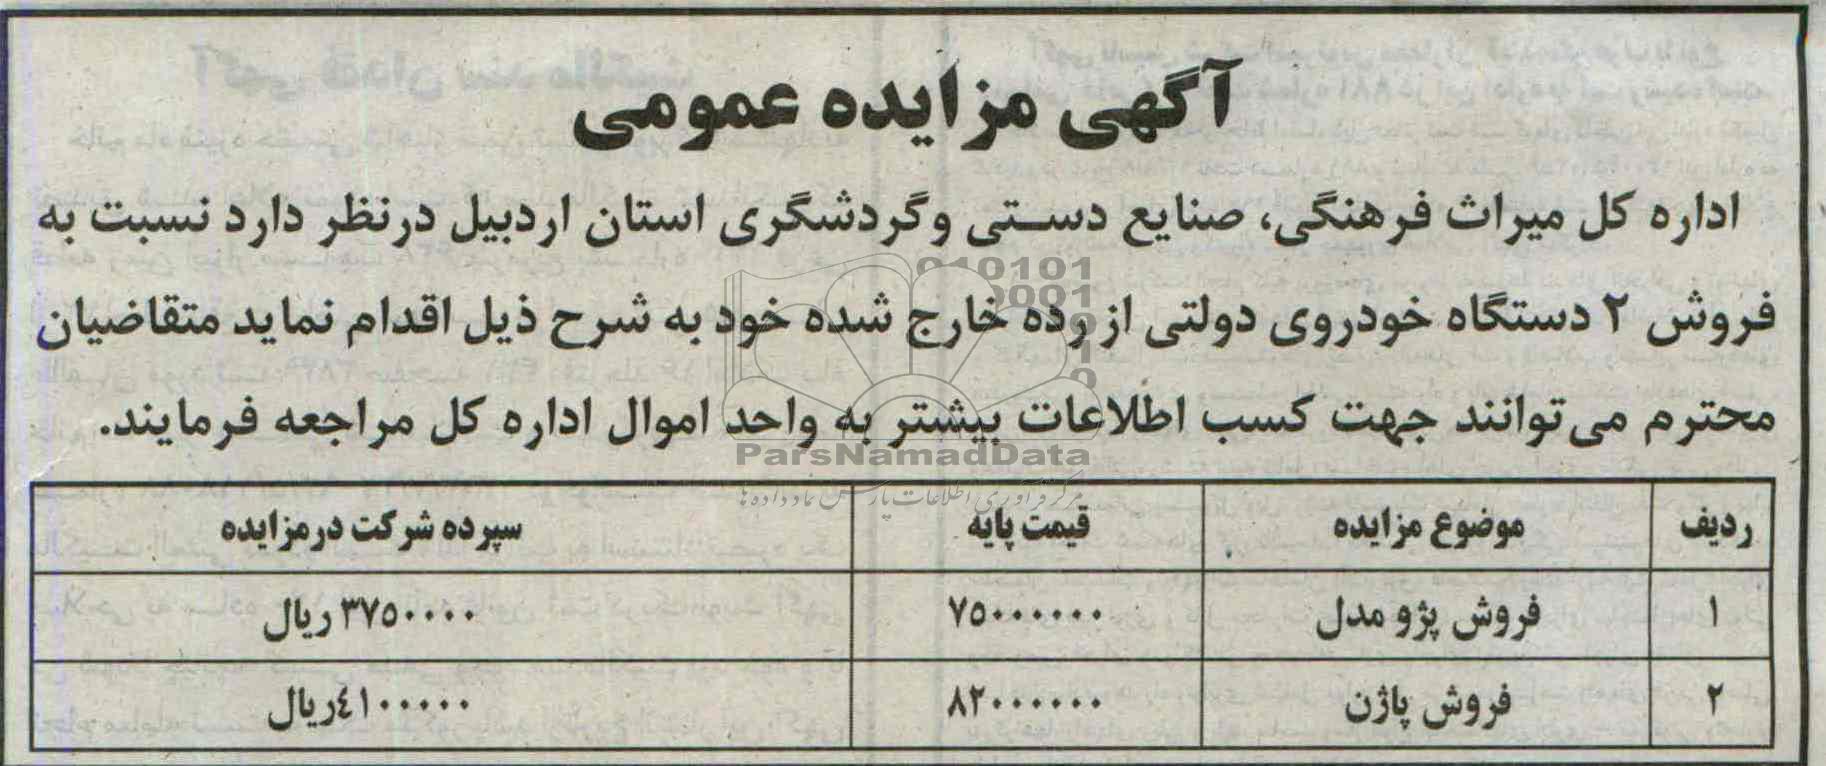 آگهی مزایده عمومی
اداره کل میراث فرهنگی، صنایع دستی وگردشگری استان اردبیل درنظر دارد نسبت به
فروش ۲ دستگاه خودروی دولتی از رده خارج شده خود به شرح ذیل اقدام نماید متقاضیان
محترم می‌توانند جهت کسب اطلاعات بیشتر به واحد اموال اداره کل مراجعه فرمایند.
ردیف موضوع مزایده قیمت پایه سپرده شرکت درمزایده
۱ فروش پژو مدل ۷۵۰۰۰۰۰۰ ۳۷۵۰۰۰۰ ریال
۲ فروش پاژن ۸۲۰۰۰۰۰۰ ۴۱۰۰۰۰۰ریال
ParsNamadData
مرکز فرآوری اطلاعات پارس نماد داده ها